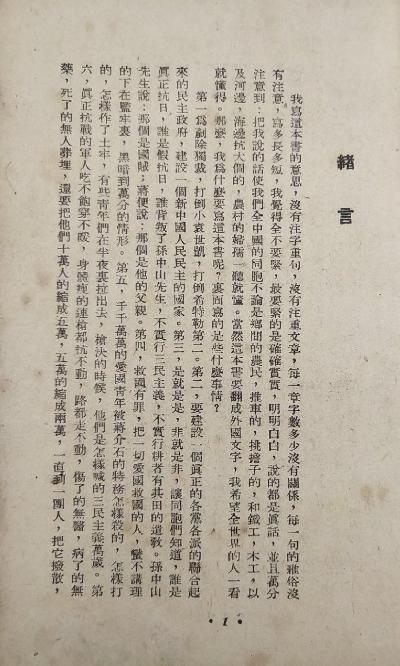 緒言
我寫這本書的意思，沒有注字重句，沒有注重文章，每一章字數多少沒有關係，每一句的雅俗沒
有注意，寫多長多短，我覺得全不要緊，最要緊的是確確實實，明明白白，說的都是眞話，並且萬分
注意到：把我說的話使我們全中國的同胞不論是鄉間的農民，推車的，挑擔子的，和鐵工，木工，以
及河邊，海邊抗大個的，農村的婦孺一聽就懂。當然這本書要翻成外國文字，我希望全世界的人一看
就懂得。那麼，我爲什麼要寫這本書呢？裏面寫的是些什麼事情？
第一爲剷除獨裁，打倒小袁世凱，打倒希特勒第二。第二，要建設一個眞正的各黨各派的聯合起
來的民主政府，建設一個新中國人民民主的國家。第三，是就是是，非就是非，讓同胞們知道，誰是
眞正抗日，誰是假抗日，誰背叛了孫中山先生，不實行三民主義，不實行耕者有其田的遺敎。孫中山
先生說：那個是國賊；蔣便說：那個是他的父親。第四，救國有罪，把一切愛國救國的人，蠻不講理
的下在監牢裏，黑暗到萬分的情形。第五，千千萬萬的愛國靑年被蔣介石的特務怎樣殺的，怎樣打
的，怎樣作了土牢，有些靑年們在半夜裏拉出去，槍決的時候，他們是怎樣喊的三民主義萬歲。第
六，眞正抗戰的軍人吃不飽穿不暖，身體瘦的連槍都抗不動，路都走不動，傷了的無醫，病了的無
藥，死了的無人葬埋，還要把他們十萬人的縮成五萬，五萬的縮成兩萬，一直到一團人，把它撥散，
·1·